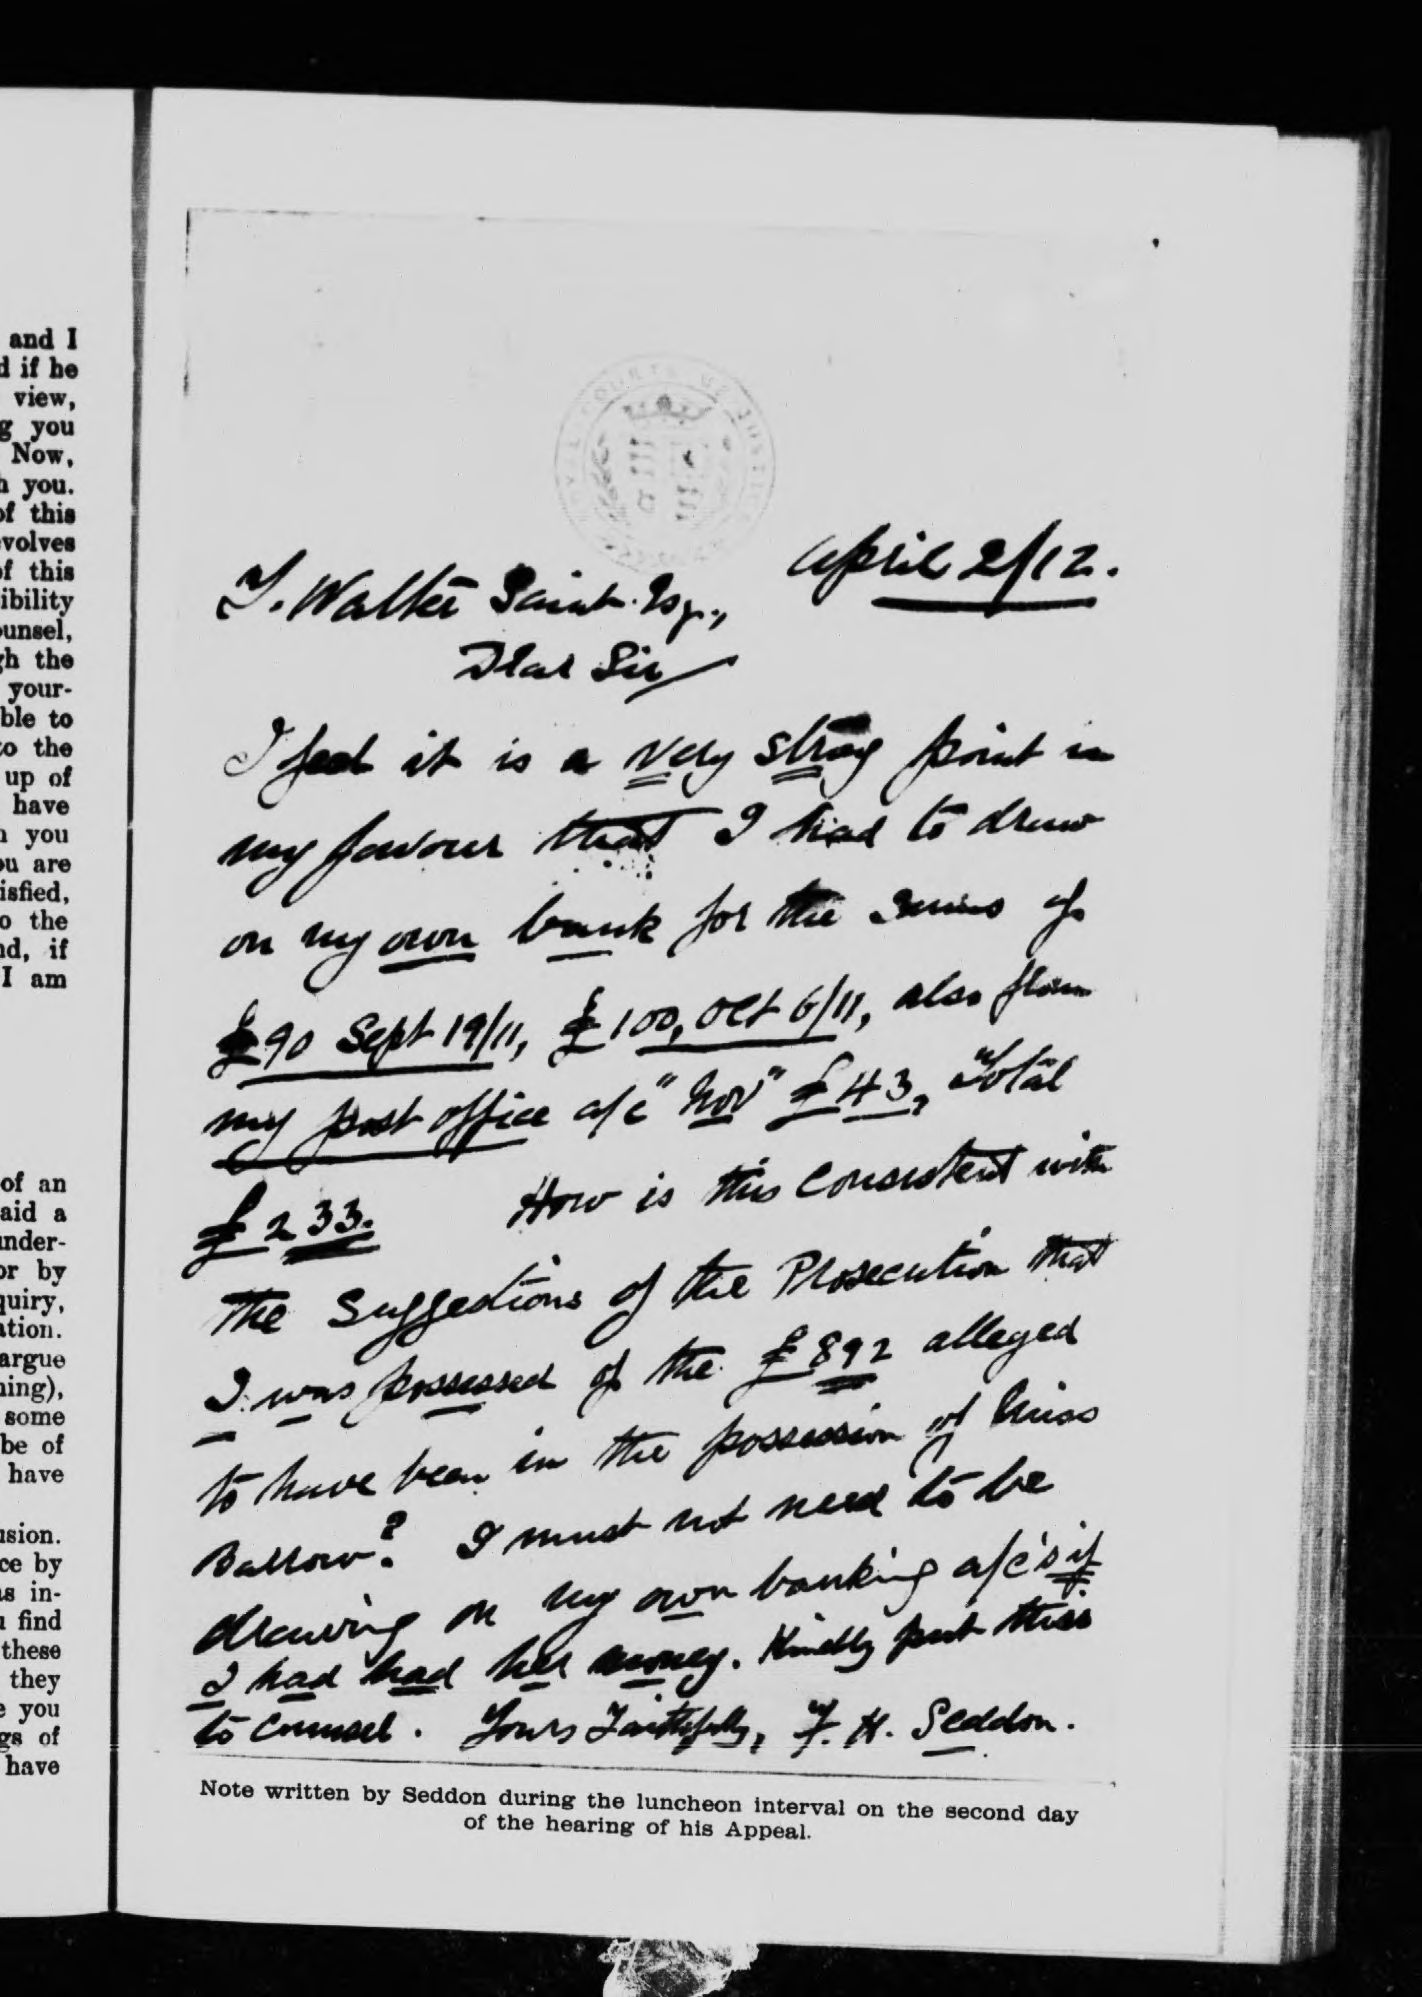 and I
d if he
view,
g you
Now,
h you.
of this
evolves
of this
ibility
ounsel,
gh the
your-
ble to
to the
up of
have
n you
ou are
isfied,
o the
nd, if
I am
of an
aid a
under-
or by
quiry,
ation.
argue
ning),
some
be of
have
usion.
ce by
as in-
u find
these
they
e you
gs of
have
ROYAL COURTS OF JUSTICE
April 2/12.
T. Walter Saint Esq.,
Dear Sir
I feel it is a very strong point in
my favour that I had to draw
on my own bank for the sums of
£90 Sept 19/11, £100, Oct 6/11, also from
my post office a/c "Nov" £43, Total
£233. How is this consistent with
the suggestions of the Prosecution that
I was possessed of the £892 alleged
to have been in the possession of Miss
Barrow? I must not need to be
drawing on my own banking a/c's if
I had had her money. Kindly put this
to counsel. Yours Faithfully, F. H. Seddon.
Note written by Seddon during the luncheon interval on the second day
of the hearing of his Appeal.